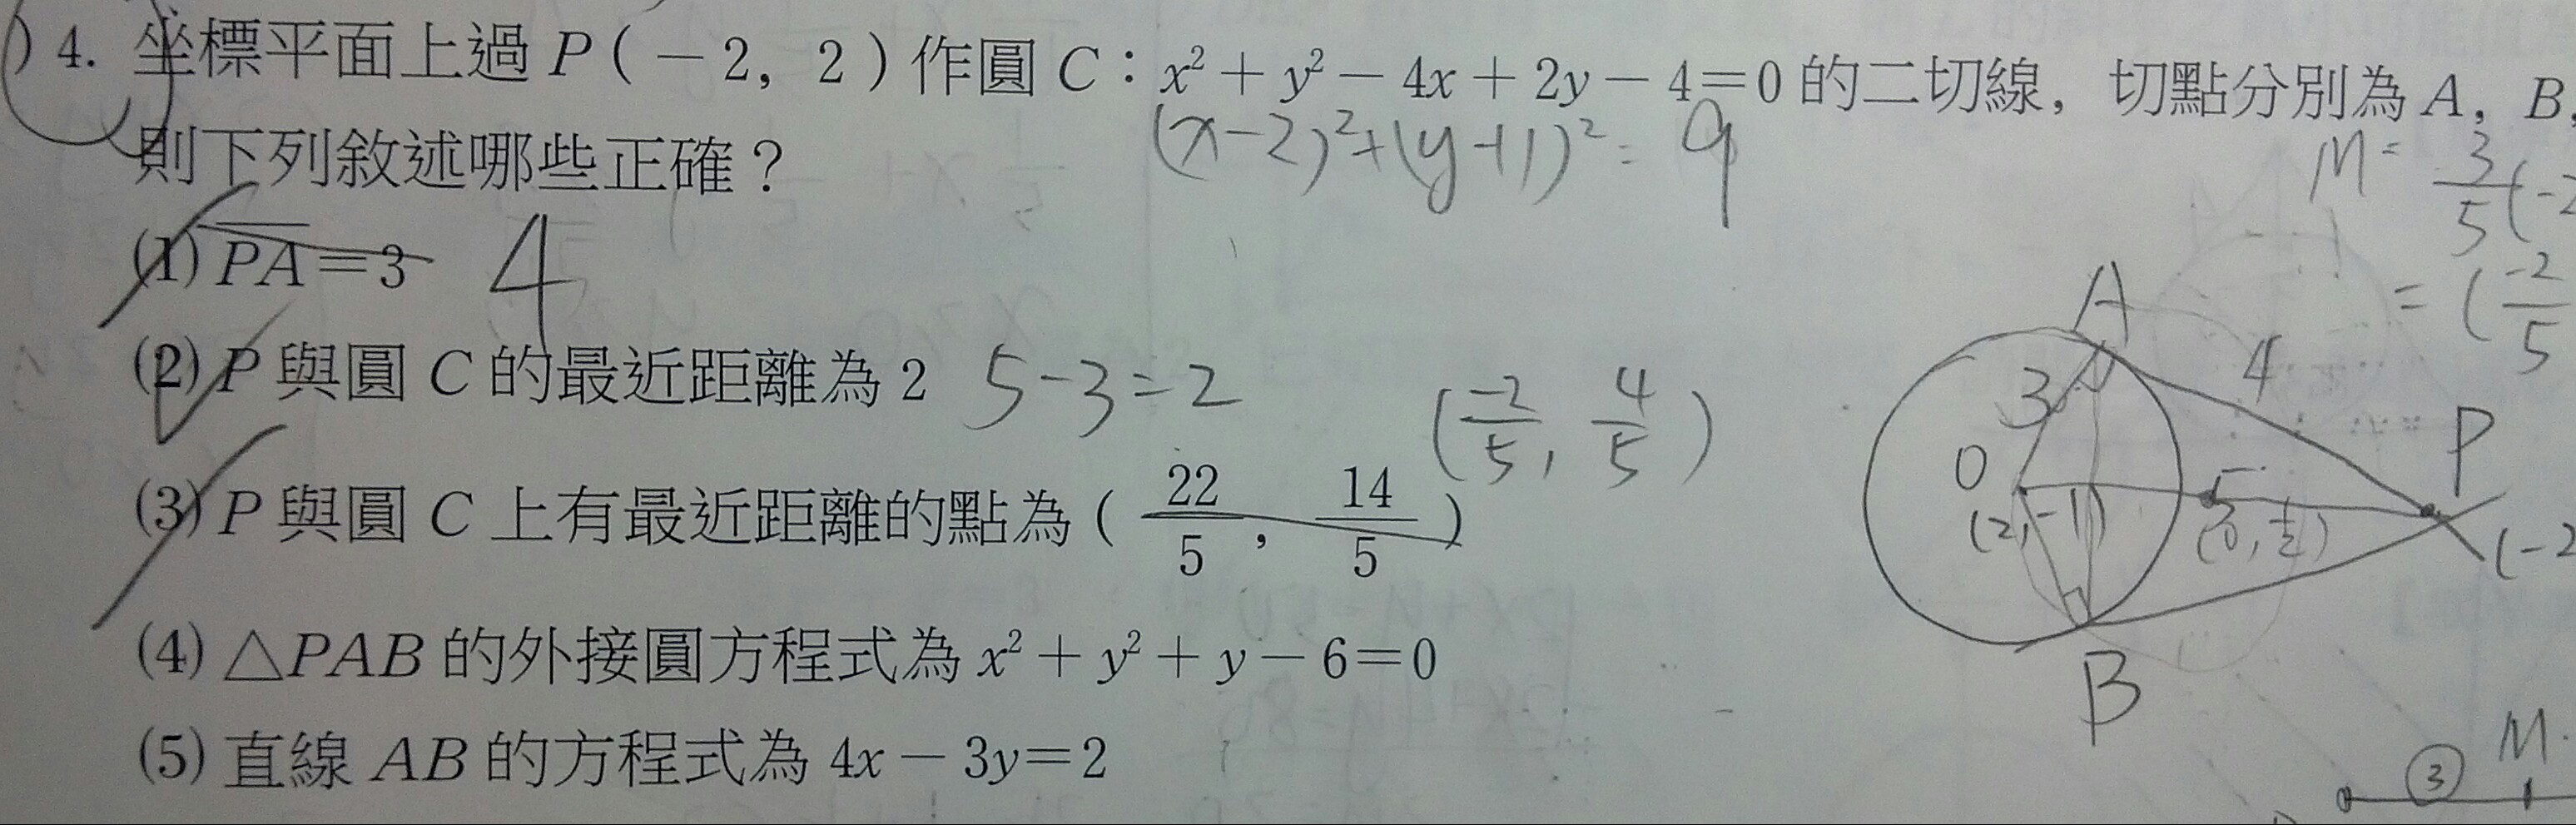 ) 4. 坐標平面上過 P ( − 2, 2 ) 作圓 C：x² + y² − 4x + 2y − 4 = 0 的二切線，切點分別為 A，B,
(x−2)²+(y+1)² = 9
則下列敘述哪些正確？
M = 3/5(-2
= (-2/5
(1) PA = 3 4
(2) P 與圓 C 的最近距離為 2 5−3=2
(-2/5, 4/5)
(3) P 與圓 C 上有最近距離的點為 ( 22/5 , 14/5 )
(4) △PAB 的外接圓方程式為 x² + y² + y − 6 = 0
(5) 直線 AB 的方程式為 4x − 3y = 2
A
4
3
P
O
5
(2, -1)
(0, 1/2)
(-2
B
M
③